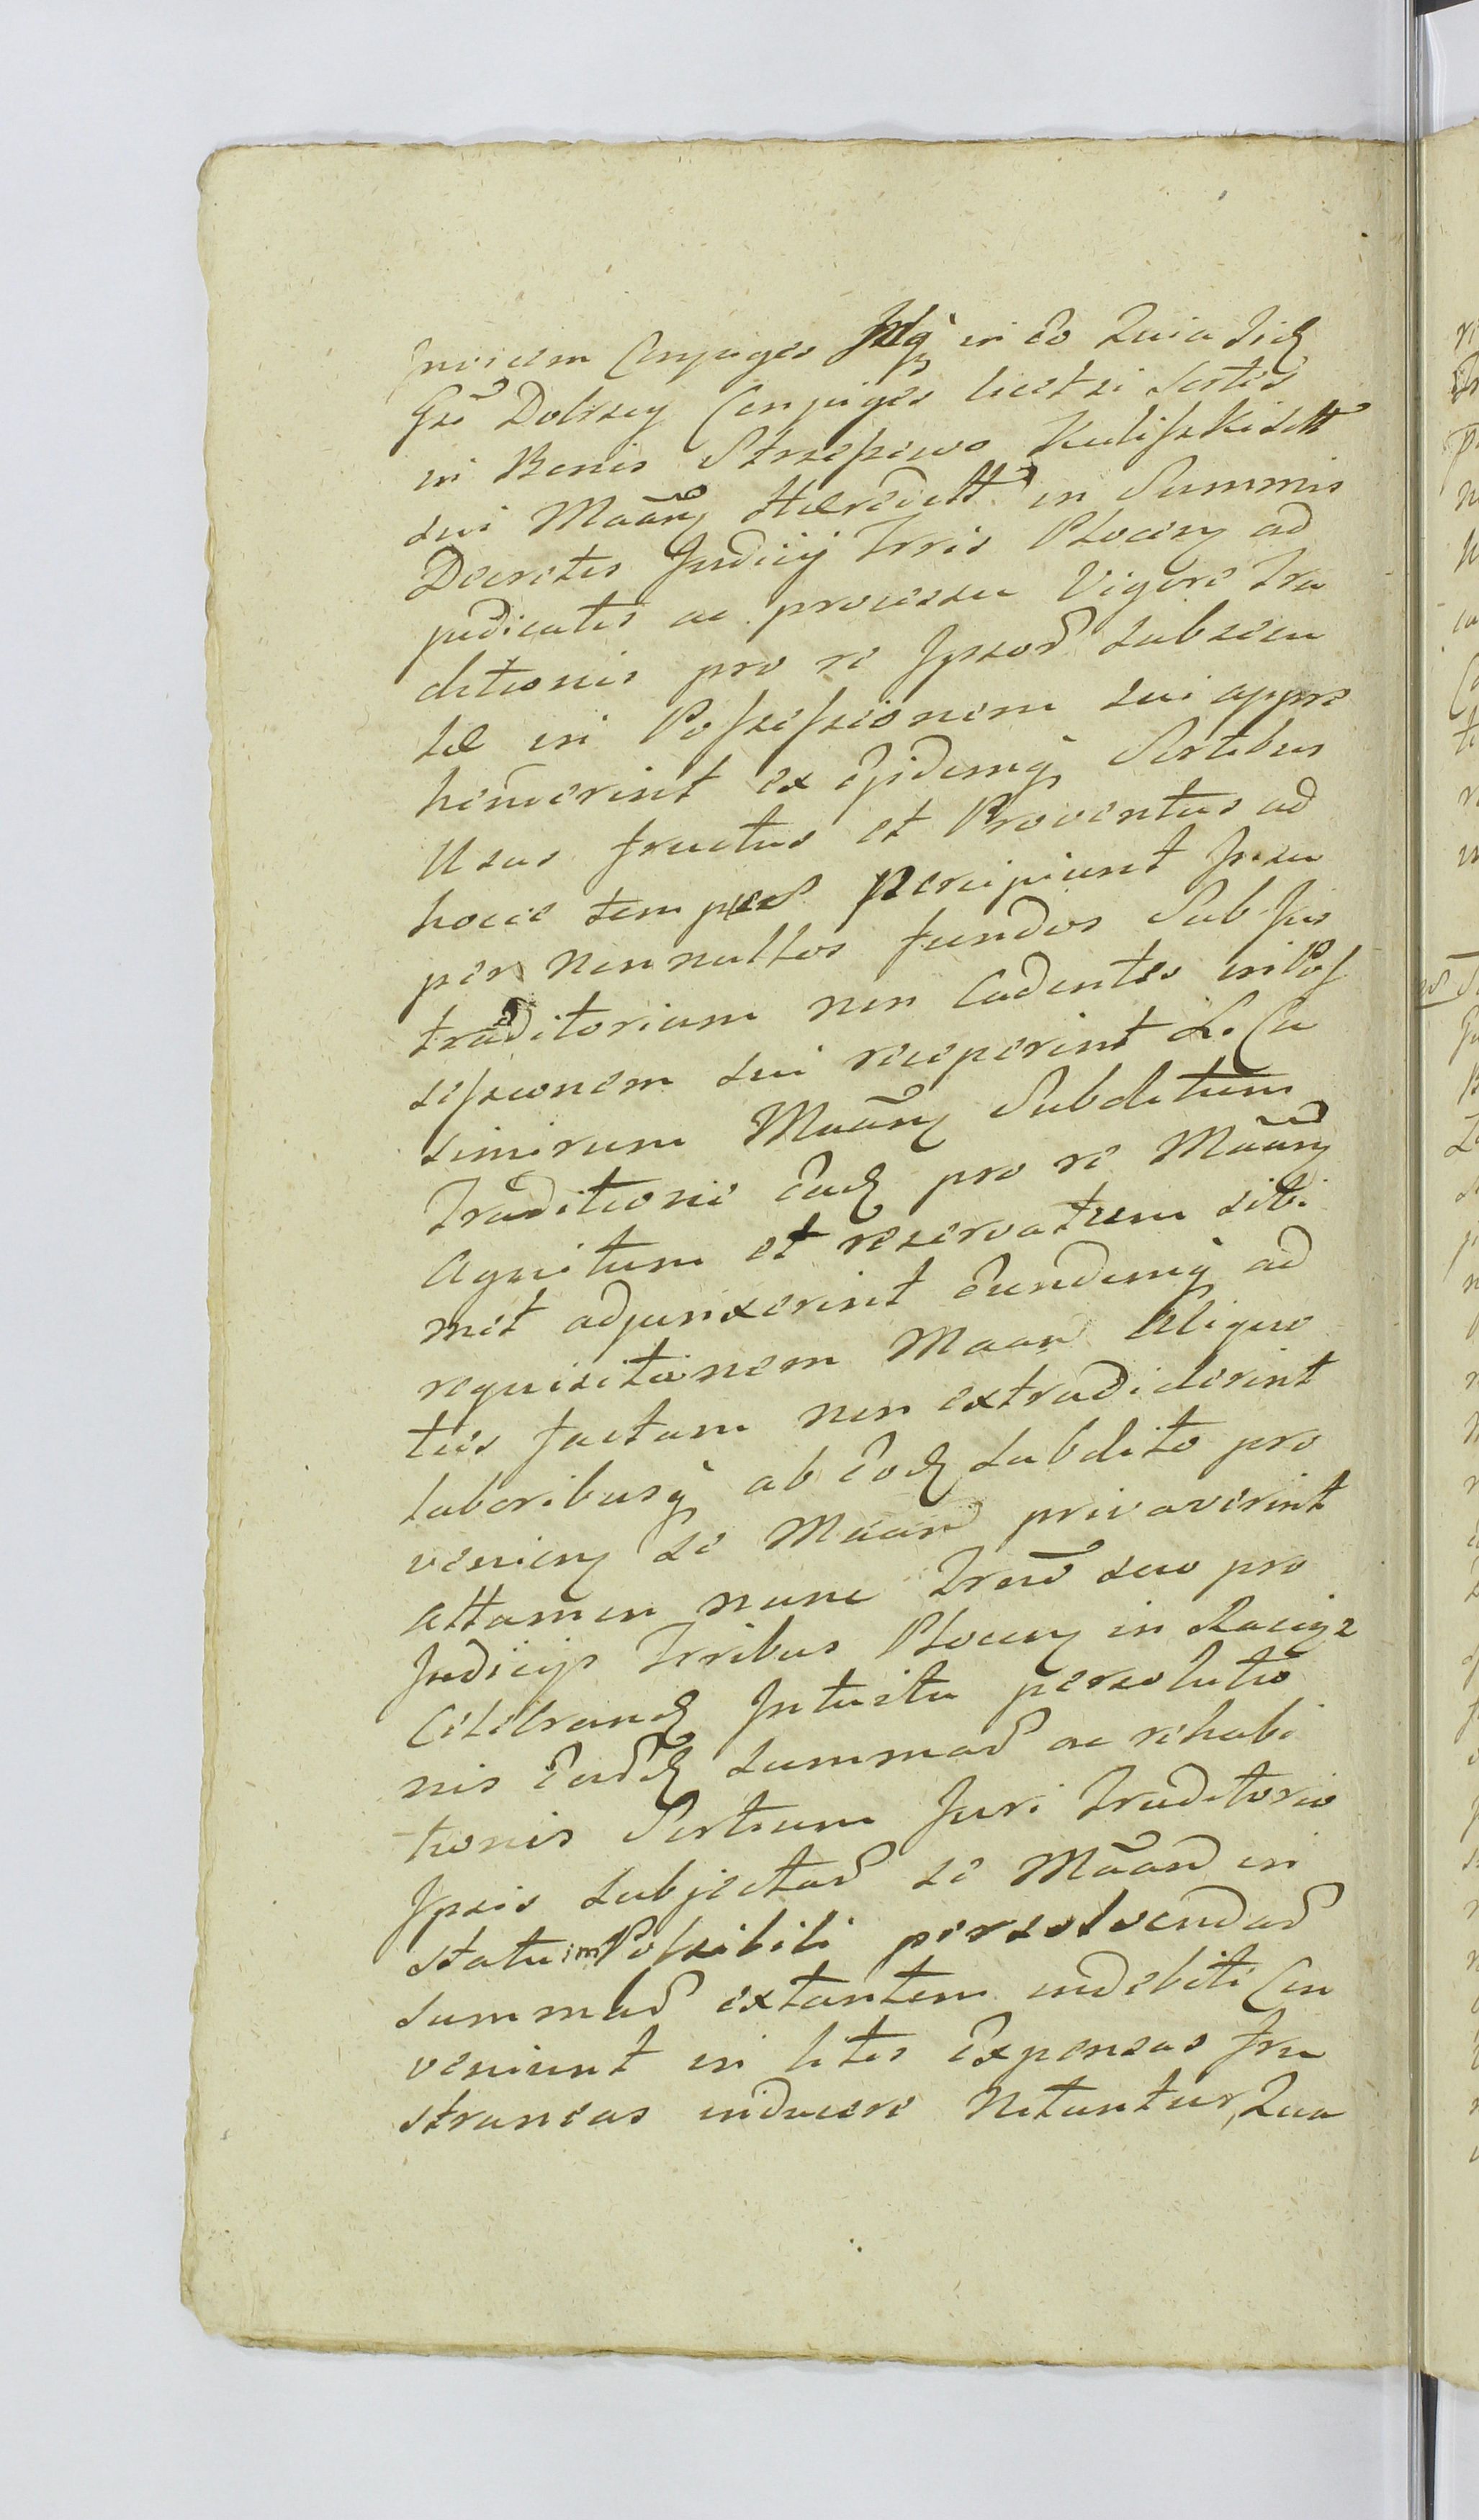 invicem Conjuges Idq̃ in eo Quia Iid
Gsi Dobrscy Conjuges licet si Sortes
in Bonis Strzeszewo Kuliszki dctt
sui Maãny Hæreditt in Summis
Decretis Judicij Trris Plocen ad
judicatis ac processu Vigore Tra
ditionis pro re Ipsor subsecu
tæ in Possessionem sui appre
henderint ex ejsdemq̃ Sortibus
Usus fructus et Proventus ad
hocce tempus percipiunt Insu
per nonnullos fundos Sub Jus
traditorium non Cadentes in Pos
sessionem sui receperint L. Ca
simirum Maãny Subditum
Traditione ead pro re Maãny
Agnitum et reservatum sibi
met adjunxerint Eundemq̃ ad
requisitionem Maan Aliquo
ties factam non extradiderint
laboribusq̃ ab Eod Subdito pro
venien se Maan privaverint
attamen nunc Trno suo pro
Judicijs Trribus Plocen in Raciąz
Celebrand Intuitu persolutio
nis eard summar ac rehabi
tionis Sortium Juri Traditorio
Ipsis subjectar se Maan in
statu impossibili persolvendar
summar extantem indebite Con
veniunt in lites Expensas fru
straneas inducere Nituntur, Qua